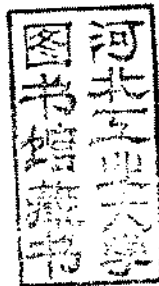 河北工业大学
图书馆藏书